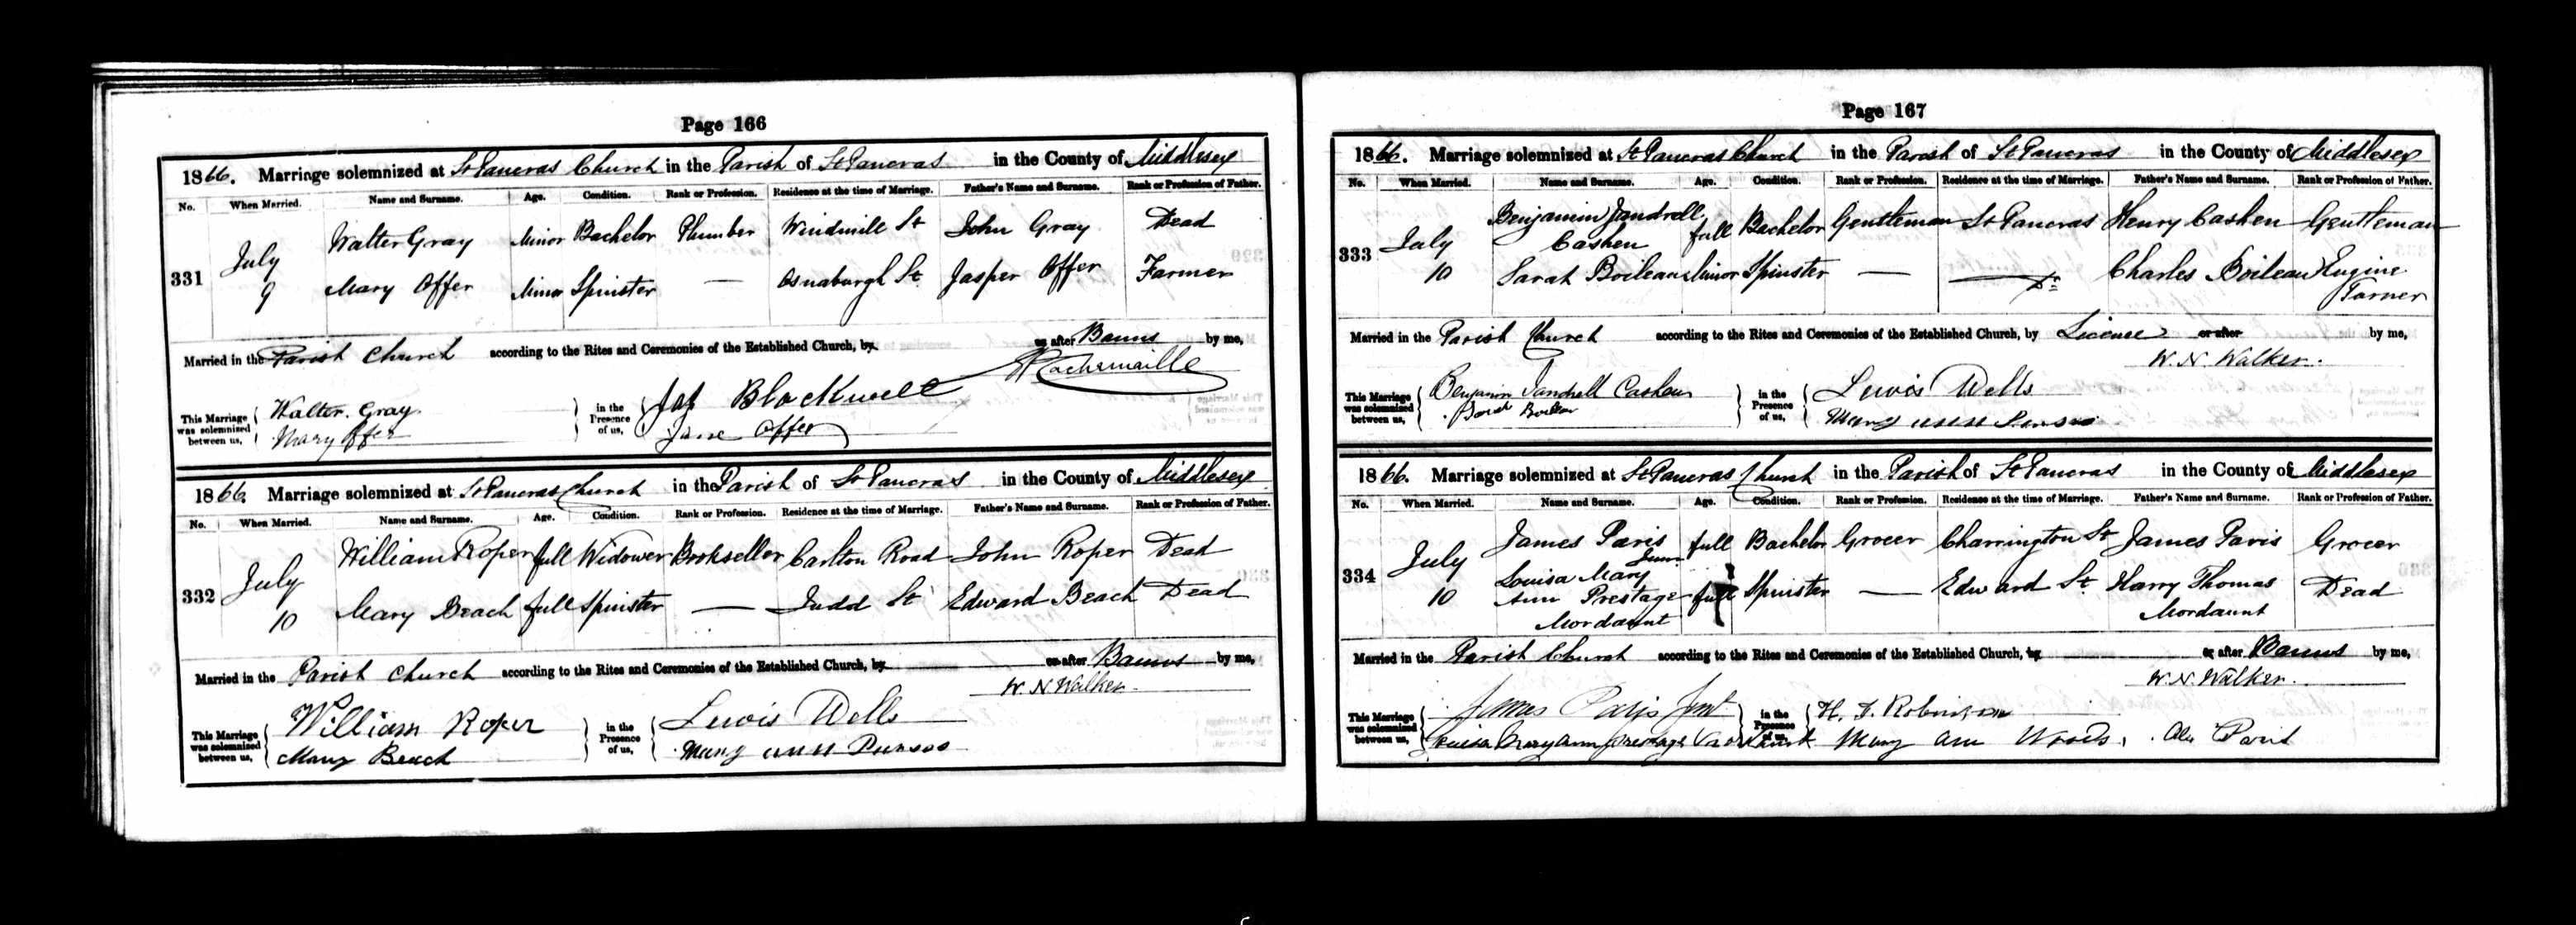 Page 166
1866. Marriage solemnized at St Pancras Church in the Parish of St Pancras in the County of Middlesex
No. When Married. Name and Surname. Age. Condition. Rank or Profession. Residence at the time of Marriage. Father's Name and Surname. Rank or Profession of Father.
331 July 9 Walter Gray Minor Bachelor Plumber Windmill St John Gray Dead
Mary Offer Minor Spinster — Osnaburgh St Jasper Offer Farmer
Married in the Parish Church according to the Rites and Ceremonies of the Established Church, by or after Banns by me,
This Marriage was solemnized between us, Walter Gray in the Presence of us, Jas Blackwell
Mary Offer Jane Offer
1866. Marriage solemnized at St Pancras Church in the Parish of St Pancras in the County of Middlesex
No. When Married. Name and Surname. Age. Condition. Rank or Profession. Residence at the time of Marriage. Father's Name and Surname. Rank or Profession of Father.
332 July 10 William Roper full Widower Bookseller Carlton Road John Roper Dead
Mary Beach full Spinster — Judd St Edward Beach Dead
Married in the Parish Church according to the Rites and Ceremonies of the Established Church, by or after Banns by me,
W. N. Walker.
This Marriage was solemnized between us, William Roper in the Presence of us, Lewis Wells
Mary Beach Mary Ann
Page 167
1866. Marriage solemnized at St Pancras Church in the Parish of St Pancras in the County of Middlesex
No. When Married. Name and Surname. Age. Condition. Rank or Profession. Residence at the time of Marriage. Father's Name and Surname. Rank or Profession of Father.
333 July 10 Benjamin Jandrell Cashen full Bachelor Gentleman St Pancras Henry Cashen Gentleman
Sarah Boileau Minor Spinster — Do Charles Boileau Engine Turner
Married in the Parish Church according to the Rites and Ceremonies of the Established Church, by License or after by me,
W. N. Walker.
This Marriage was solemnized between us, Benjamin Jandrell Cashen in the Presence of us, Lewis Wells
Mary Ann
1866. Marriage solemnized at St Pancras Church in the Parish of St Pancras in the County of Middlesex
No. When Married. Name and Surname. Age. Condition. Rank or Profession. Residence at the time of Marriage. Father's Name and Surname. Rank or Profession of Father.
334 July 10 James Paris Junr. full Bachelor Grocer Charrington St James Paris Grocer
Louisa Mary Ann Prestage Mordaunt full Spinster — Edward St Harry Thomas Mordaunt Dead
Married in the Parish Church according to the Rites and Ceremonies of the Established Church, by or after Banns by me,
W. N. Walker.
This Marriage was solemnized between us, James Paris Junr in the Presence of us, H. Robinson
Louisa Mary Ann Prestage Mordaunt Mary Ann Woods. Paris